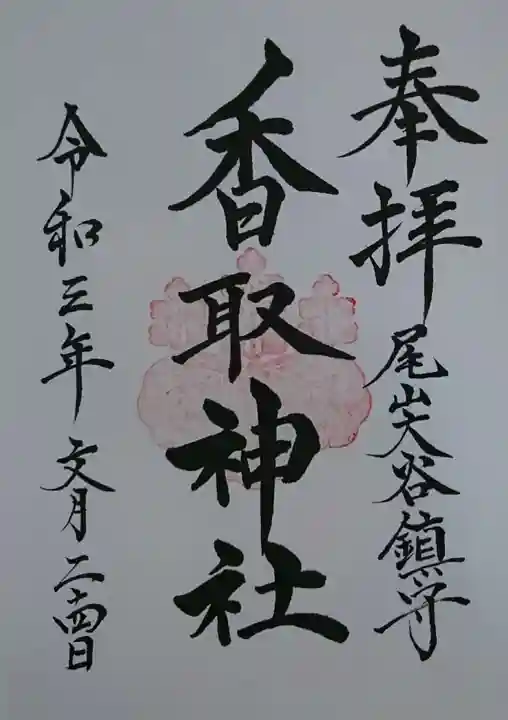 奉拝
尾山大谷鎮守
香取神社
令和三年 文月二十四日